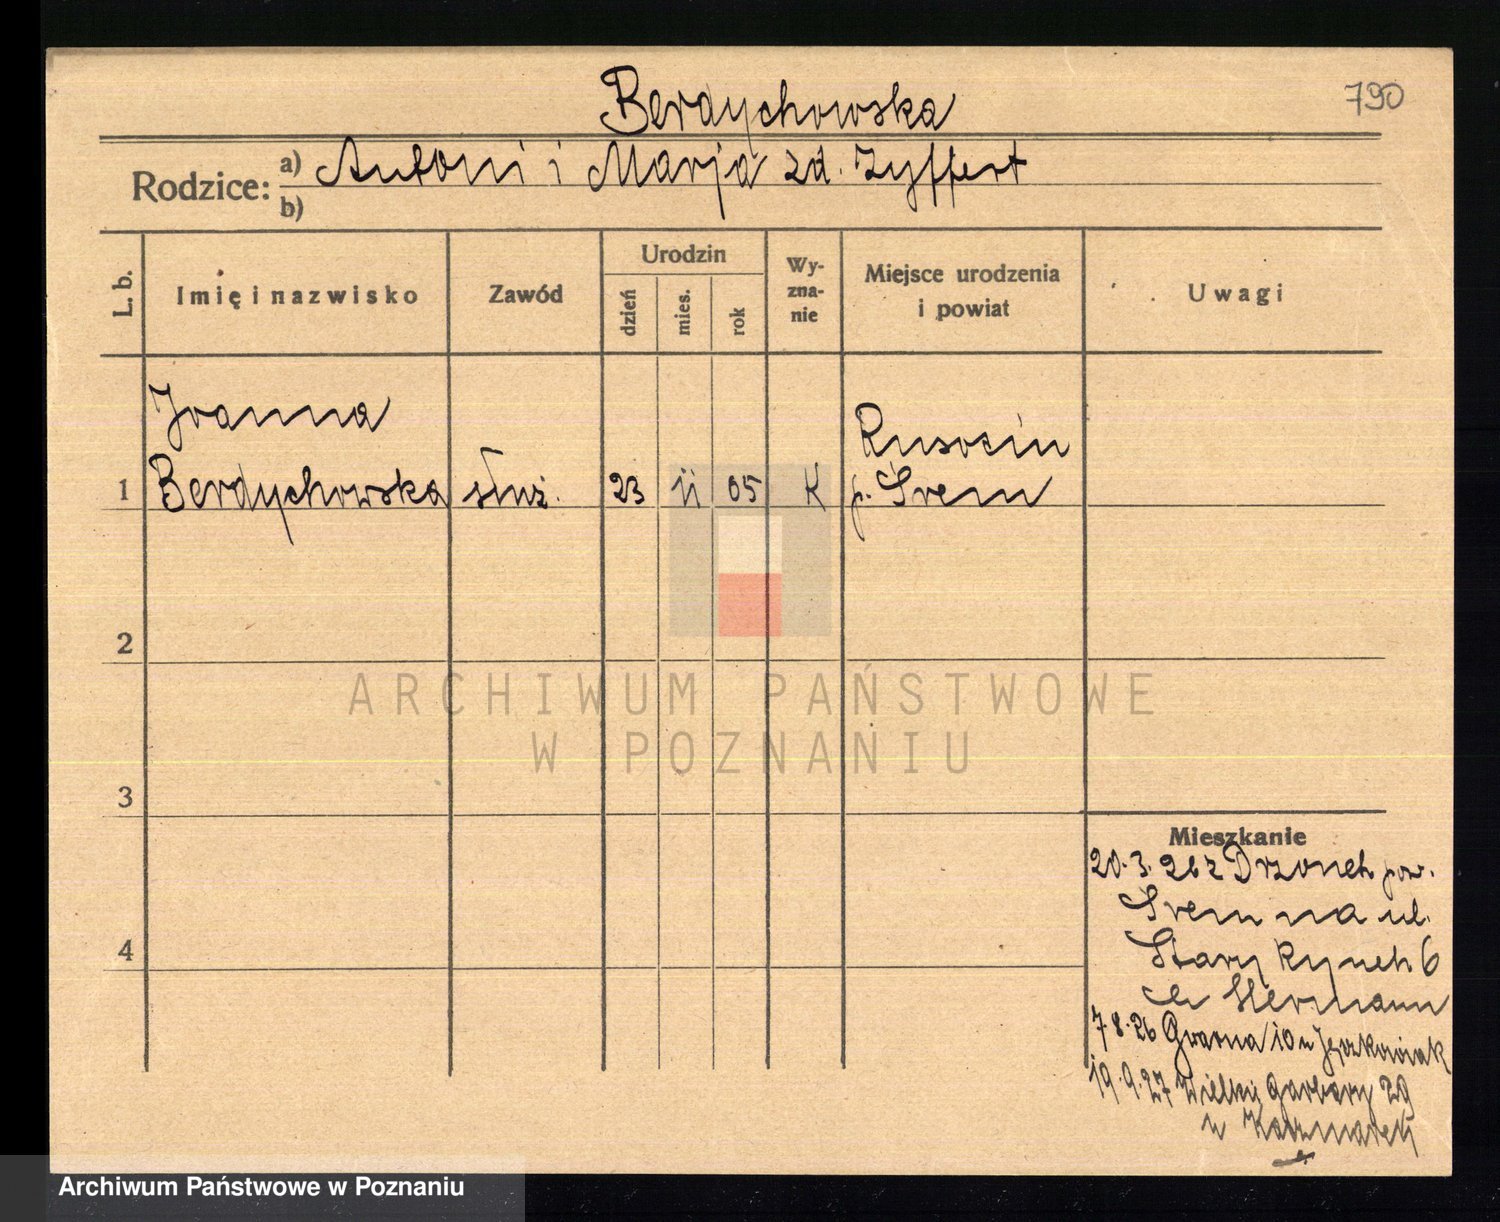 Berdychowska
790
Rodzice: a) Antoni i Marja zd. Zyffert
b)
L. b.
Imię i nazwisko
Zawód
Urodzin
dzień
mies.
rok
Wy-
zna-
nie
Miejsce urodzenia
i powiat
Uwagi
Joanna
1 Berdychowska służ. 23 11 05 K
Rusocin
p. Śrem
2
3
4
ARCHIWUM PAŃSTWOWE
W POZNANIU
Mieszkanie
20.3.26 z Drzonek pow.
Śrem na ul.
Stary Rynek 6
Hermann
7.8.26 10 u
19.9.27 Wielkie Garbary 29
u Kaczmarek
Archiwum Państwowe w Poznaniu